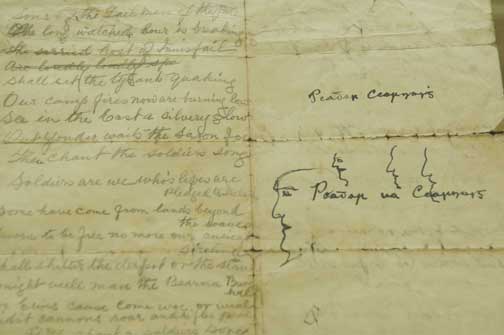 Sons of the Gael men of the Pale
The long watched hour is breaking
The serried host of Innisfail
Are loudly loudly
Shall set the tyrants quaking
Our camp fires now are burning low
See in the East a silvery glow
Out yonder waits the Saxon foe
Then chant the soldiers song
Soldiers are we who's lifes are
Pledged to
Some have come from lands beyond
the wave
sworn to be free no more our ancient
sireland
shall shelter the despot or the slave
night well man the Bearna
Erins cause come woe or weal
cannons roar and rifles peal
chant a soldiers song
Peadar Cearnaig
Peadar na Cearnaig